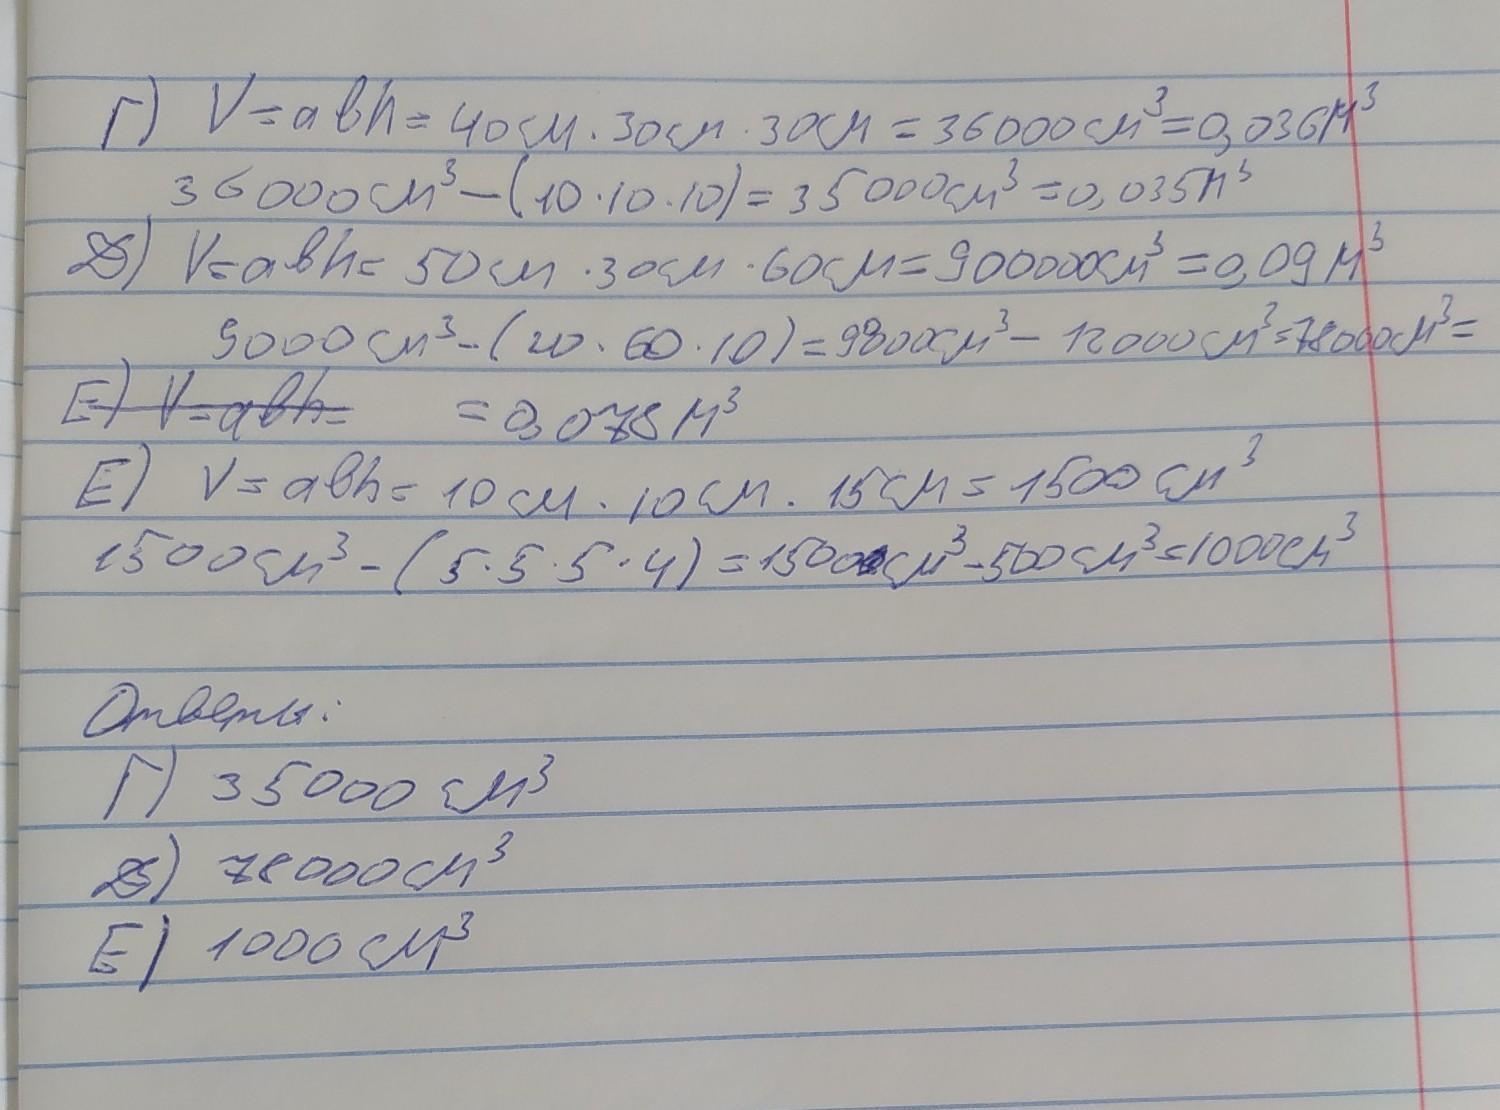 Г) V=abh=40см·30см·30см=36000см³=0,036м³
36000см³-(10·10·10)=35000см³=0,035м³
Д) V=abh=50см·30см·60см=900000см³=0,09м³
9000см³-(20·60·10)=9800см³-12000см³=78000см³=
Е) V=abh= =0,078м³
Е) V=abh=10см·10см·15см=1500см³
1500см³-(5·5·5·4)=1500см³-500см³=1000см³
Ответы:
Г) 35000см³
Д) 78000см³
Е) 1000см³